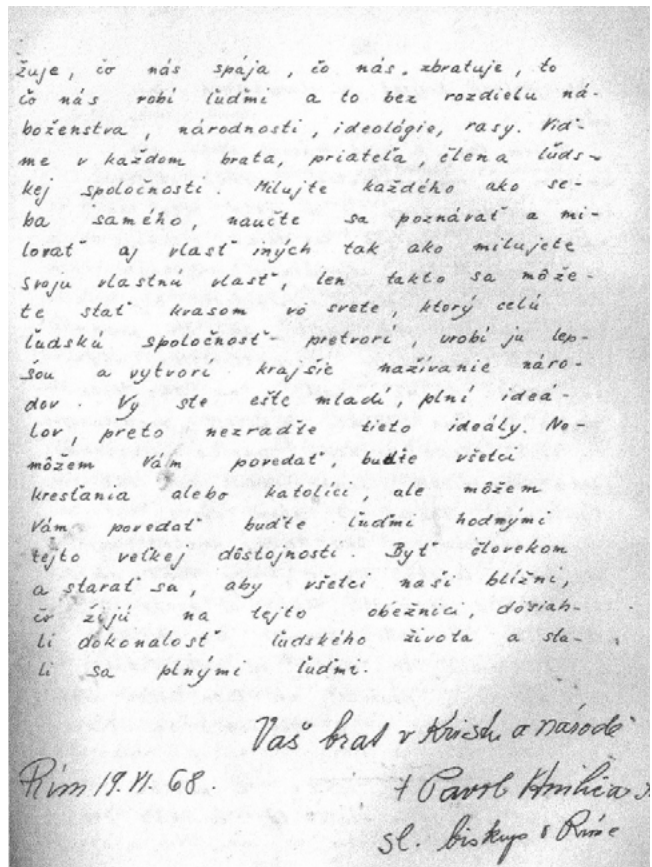 žuje, čo nás spája, čo nás zbratuje, to
čo nás robí ľuďmi a to bez rozdielu ná-
boženstva, národnosti, ideológie, rasy. Viď-
me v každom brata, priateľa, člena ľuds-
kej spoločnosti. Milujte každého ako se-
ba samého, naučte sa poznávať a mi-
lovať aj vlasť iných tak ako milujete
svoju vlastnú vlasť, len takto sa môže-
te stať kvasom vo svete, ktorý celú
ľudskú spoločnosť pretvorí, urobí ju lep-
šou a vytvorí krajšie nažívanie náro-
dov. Vy ste ešte mladí, plní ideá-
lov, preto nezraďte tieto ideály. Ne-
môžem Vám povedať, buďte všetci
kresťania alebo katolíci, ale môžem
Vám povedať buďte ľuďmi hodnými
tejto veľkej dôstojnosti Byť človekom
a starať sa, aby všetci naši blížni,
čo žijú na tejto obežnici, dosiah-
li dokonalosť ľudského života a sta-
li sa plnými ľuďmi.
Vaš brat v Kristu a národe
Rím 19. VI. 68.
+ Pavol Hnilica
sl. biskup v Ríme